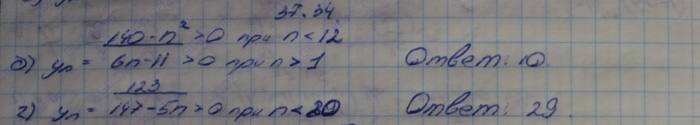 37.34
140-n² > 0 при n < 12
б) yn = 6n-11 > 0 при n > 1 Ответ: 10.
123
г) yn = 147-5n > 0 при n < 30 Ответ: 29.